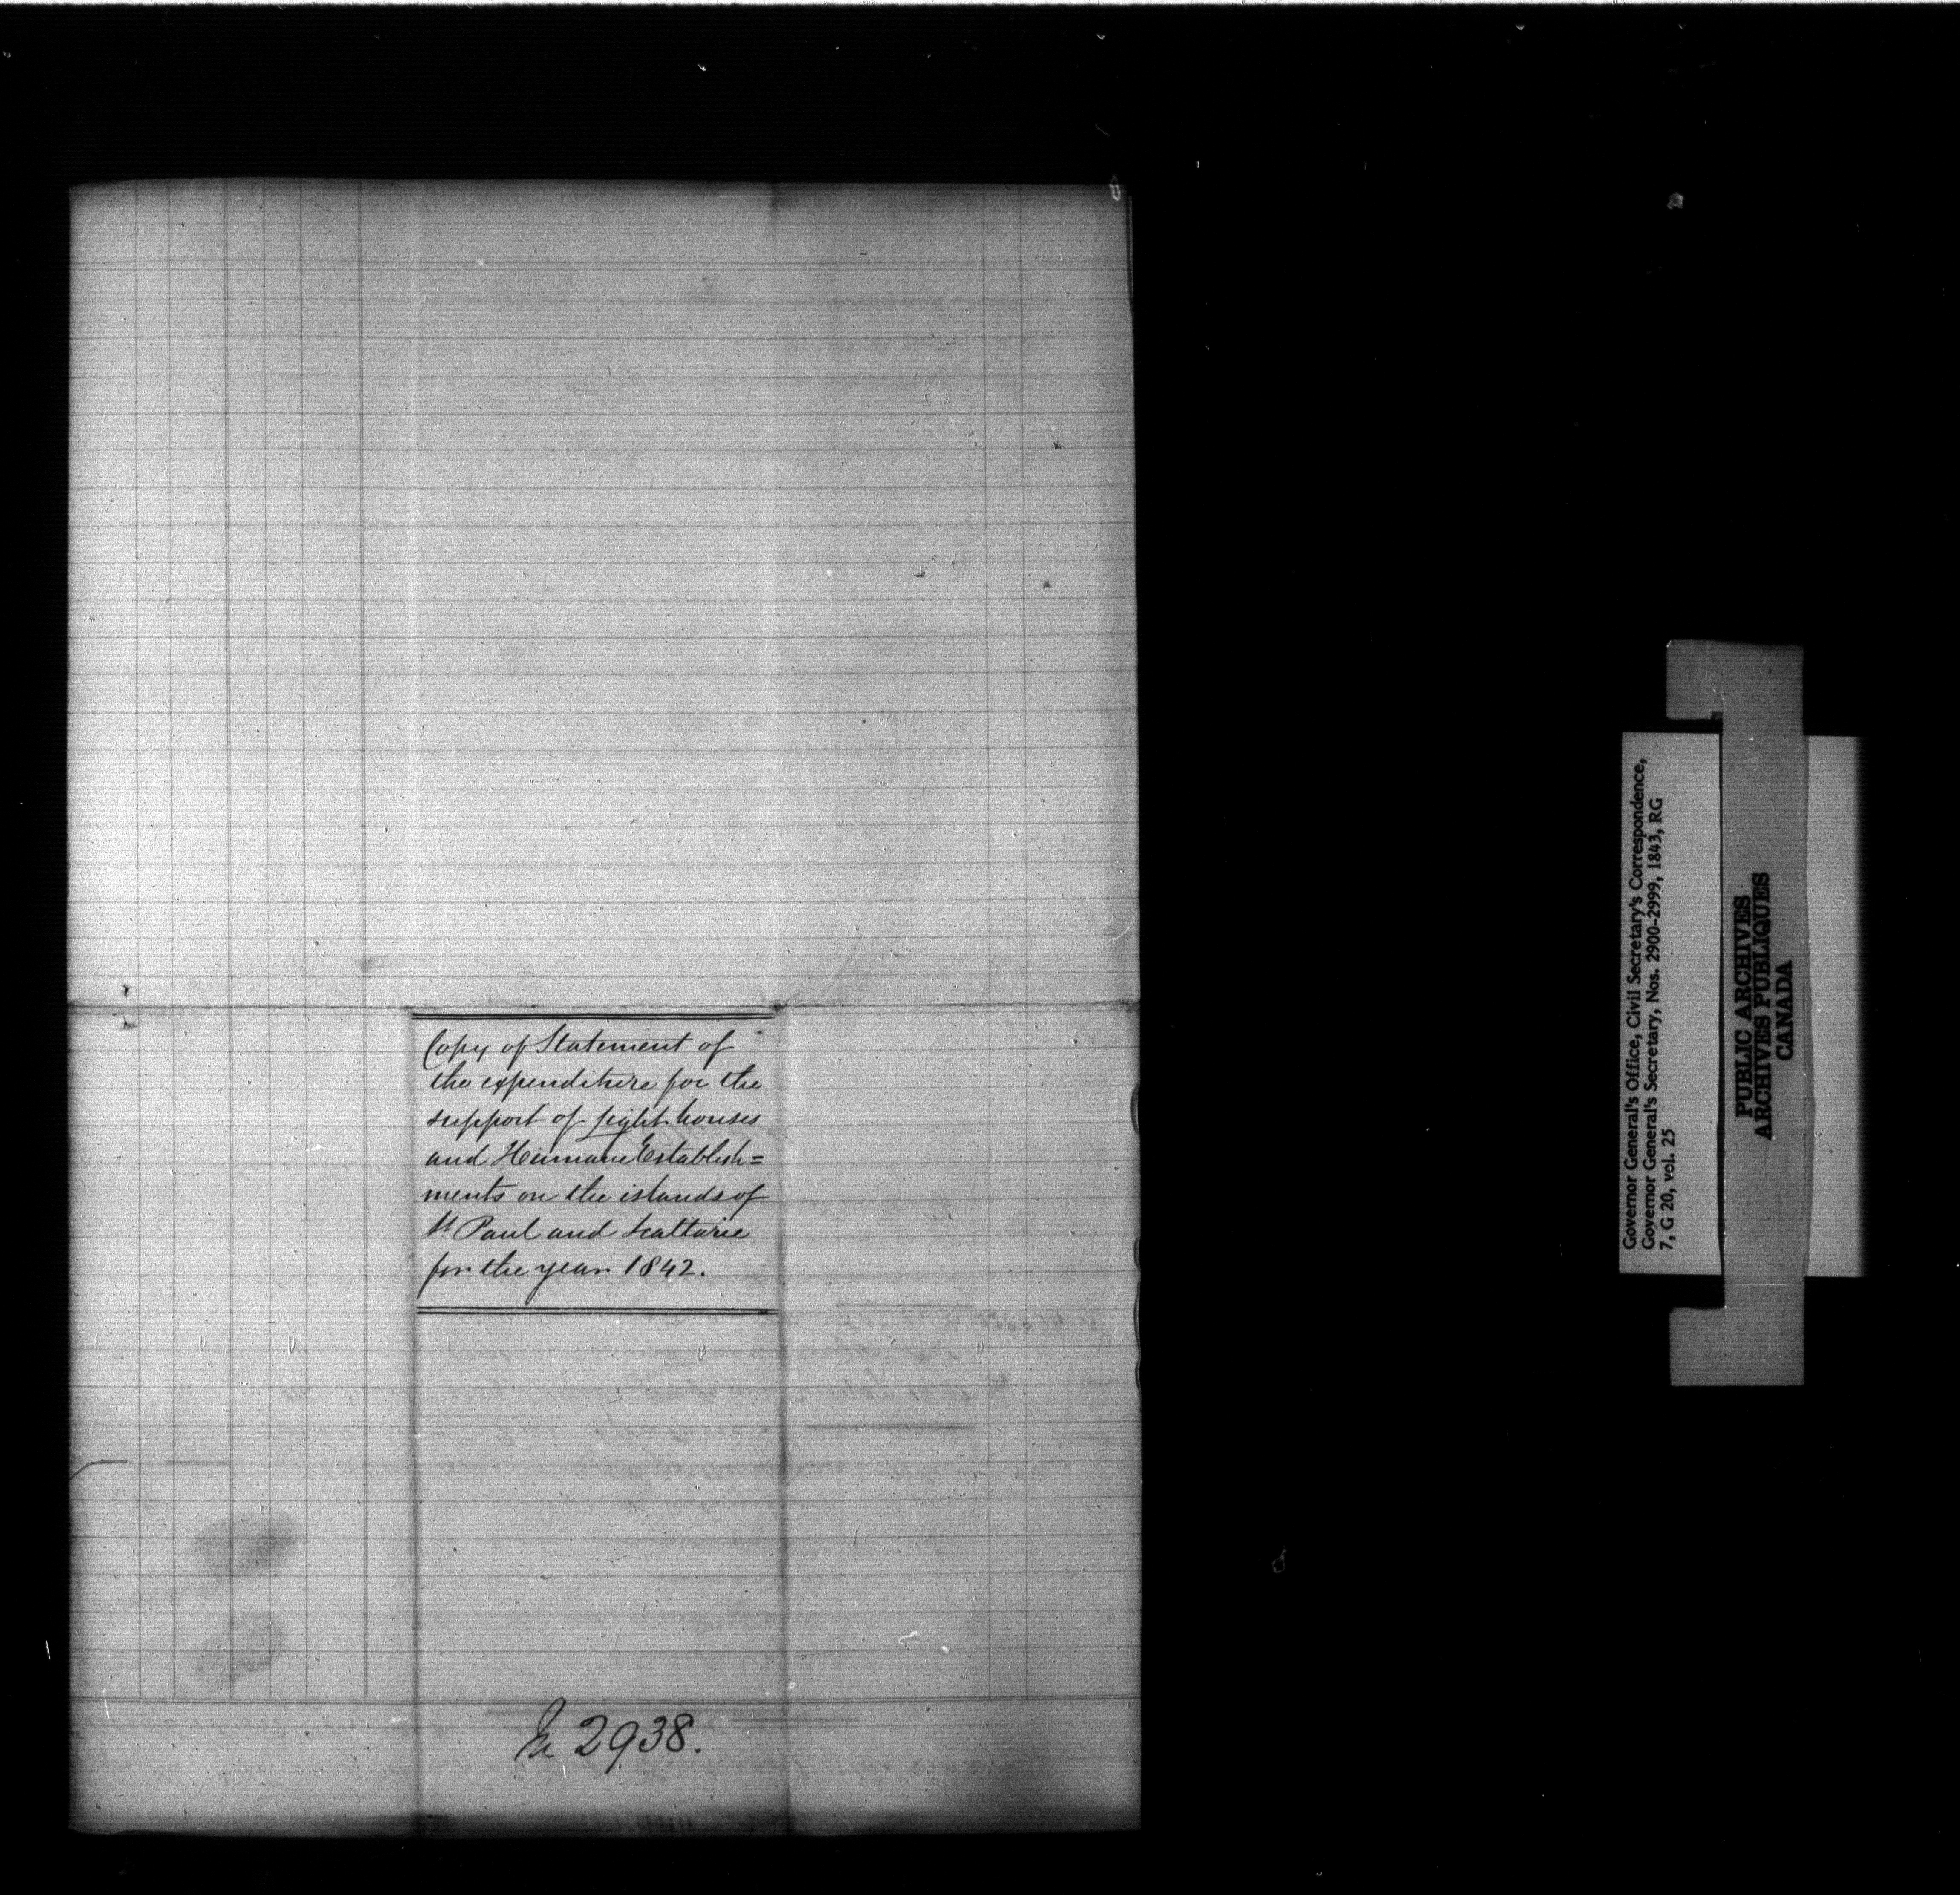 Copy of Statement of
the expenditure for the
support of light houses
and Humane Establish=
ments on the islands of
St Paul and Scattarie
for the year 1842.
In 2938.
Governor General's Office, Civil Secretary's Correspondence,
Governor General's Secretary, Nos. 2900-2999, 1843, RG
7, G 20, vol. 25
PUBLIC ARCHIVES
ARCHIVES PUBLIQUES
CANADA